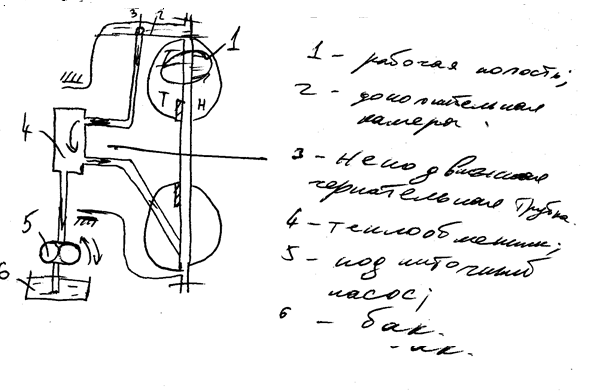 3 2
1
T H
4
5
6
1 - рабочая полость;
2 - дополнительная
камера.
3 - неподвижная
черпательная трубка.
4 - теплообменник;
5 - подпиточный
насос;
6 - бак.